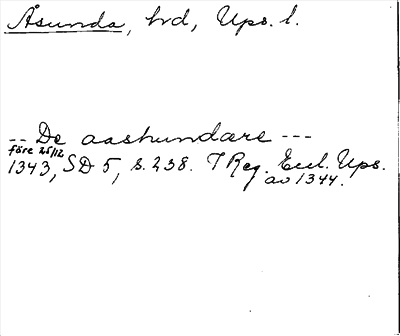 Åsunda, hd, Ups. l.
-- De aashundare ---
före 25/12
1343, SD 5, s. 238. T Reg. Eccl. Ups.
av 1344.